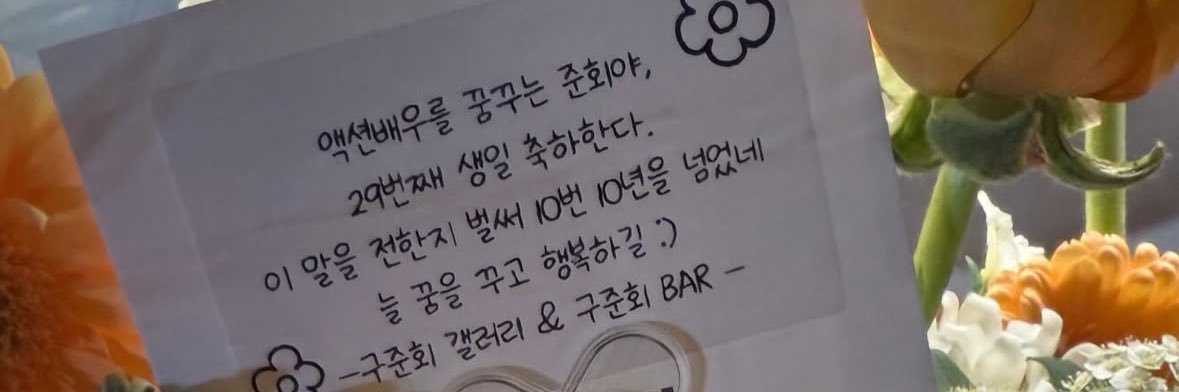 액션배우를 꿈꾸는 준회야,
29번째 생일 축하한다.
이 말을 전한지 벌써 10번 10년을 넘었네
늘 꿈을 꾸고 행복하길 :)
-구준회 갤러리 & 구준회 BAR -